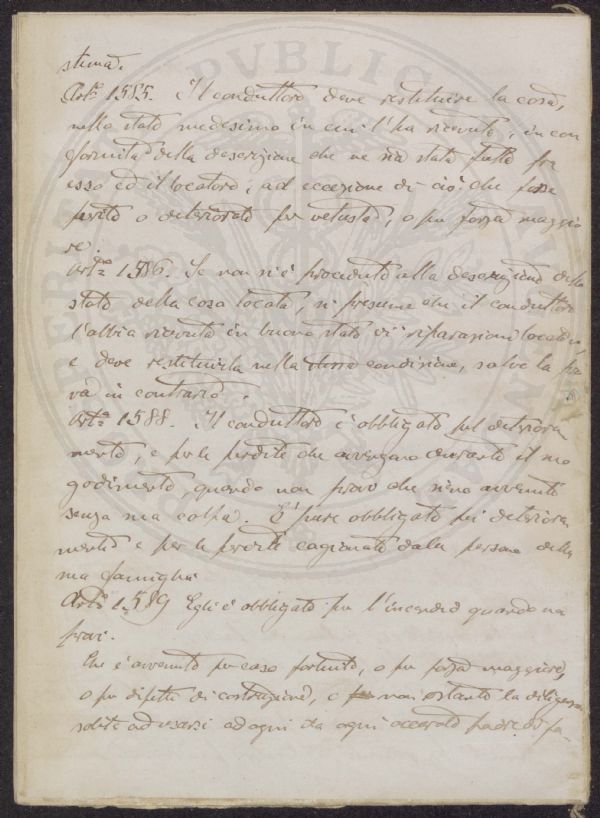 stima.
Art.º 1585. Il conduttore deve restituire la cosa,
nello stato medesimo in cui l'ha ricevuta, in con
formità della descrizione che ne sia stata fatta fra
esso ed il locatore, ad eccezione di ciò che fosse
perito o deteriorato per vetustà, o per forza maggio
re.
Art.º 1586. Se non si è proceduto alla descrizione dello
stato della cosa locata, si presume che il conduttore
l'abbia ricevuta in buono stato di riparazioni locative,
e deve restituirla nella stessa condizione, salvo la pro
va in contrario.
Art.º 1588. Il conduttore è obbligato pel deteriora
mento, e per le perdite che avvengono durante il suo
godimento, quando non provi che siano avvenute
senza sua colpa. È pure obbligato pei deteriora
menti e per le perdite cagionate dalle persone della
sua famiglia
Art.º 1589 Egli è obbligato per l'incendio quando non
provi.
Che è avvenuto per caso fortuito, o per forza maggiore,
o per difetto di costruzione, e non ostante la diligenza
solita ad usarsi ad ogni da ogni accurato padre di fa-
PVBLICA